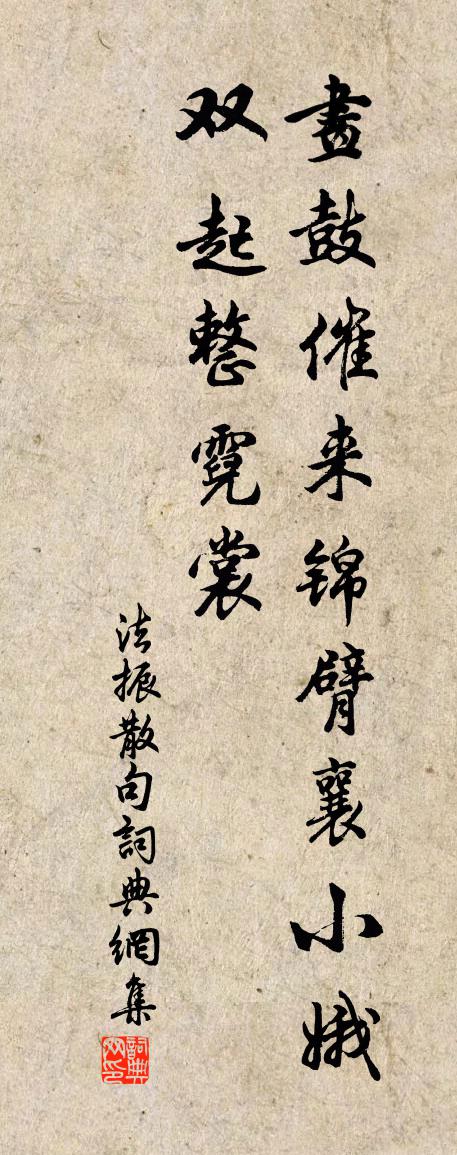 畫鼓催来锦臂襄小娥
双起整霓裳
法振散句詞典網集
詞典網印